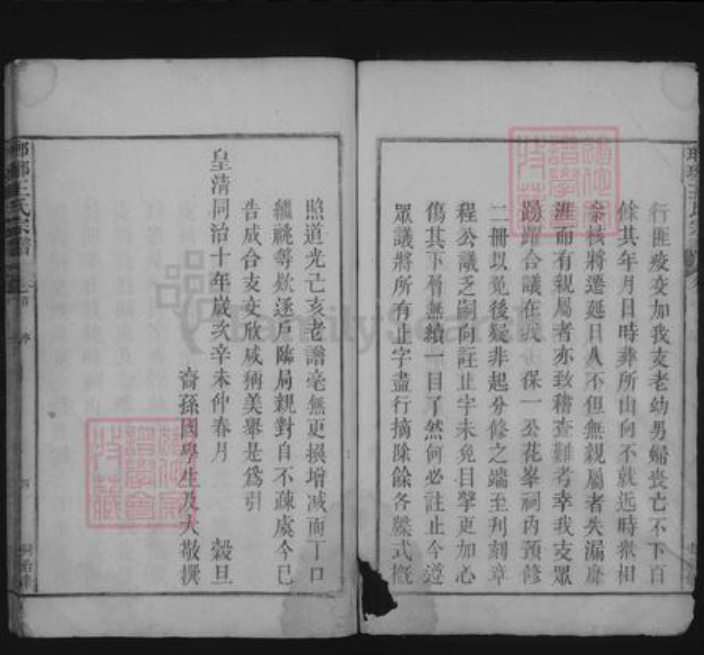 行匪疫交加我支老幼男婦喪亡不下百
餘其年月日時葬所山向不就近時眾相
余核將遷延日久不但無親屬者失漏靡
涯而有親屬者亦致稽查難考幸我支眾
踴躍合議在我 保一公花峯祠內預修
二冊以免後疑非起分修之端至刋刻章
程公議乏嗣向註止字未免目擊更加心
傷其下層無續一目了然何必註止今遵
眾議將所有止字盡行摘除餘各牒式概
照道光己亥老譜毫無更損增減而丁口
繼祧等欵逐戶臨局親對自不疎虞今已
告成合支交欣咸稱美舉是為引
皇清同治十年歲次辛未仲春月 穀旦
裔孫國學生及大敬撰
瑯琊王氏宗譜